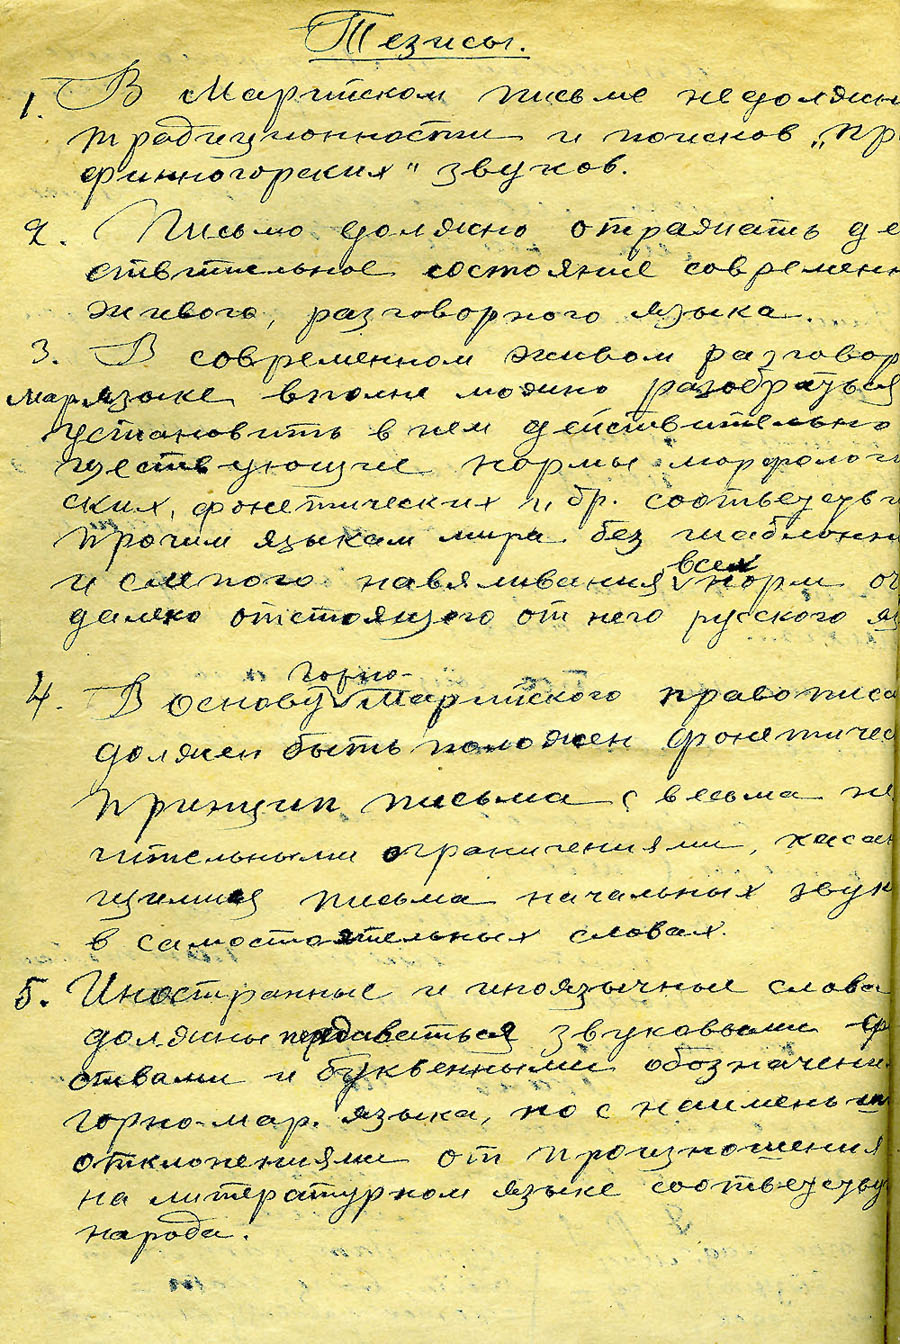 Тезисы.
1. В Марийском письме не должны
традиционности и поисков „пр
финногорских" звуков.
2. Письмо должно отражать де
ствительное состояние современн
живого, разговорного языка.
3. В современном живом разговор
мар. языке вполне можно разобраться
установить в нем действительно
ществующие нормы морфологи
ских, фонетических и др. соответству
прочим языкам мира без шаблонн
и слепого навяливания всех норм оч
далеко отстоящего от него русского яз
4. В основу горно-Марийского правописа
должен быть положен фонетичес
принцип письма с весьма не
чительными ограничениями, касаю
щимися письма начальных звук
в самостоятельных словах.
5. Иностранные и иноязычные слова
должны передаваться звуковыми ср
ствами и буквенными обозначени
горно-мар. языка, но с наименьш
отклонениями от произношения
на литературном языке соответству
народа.